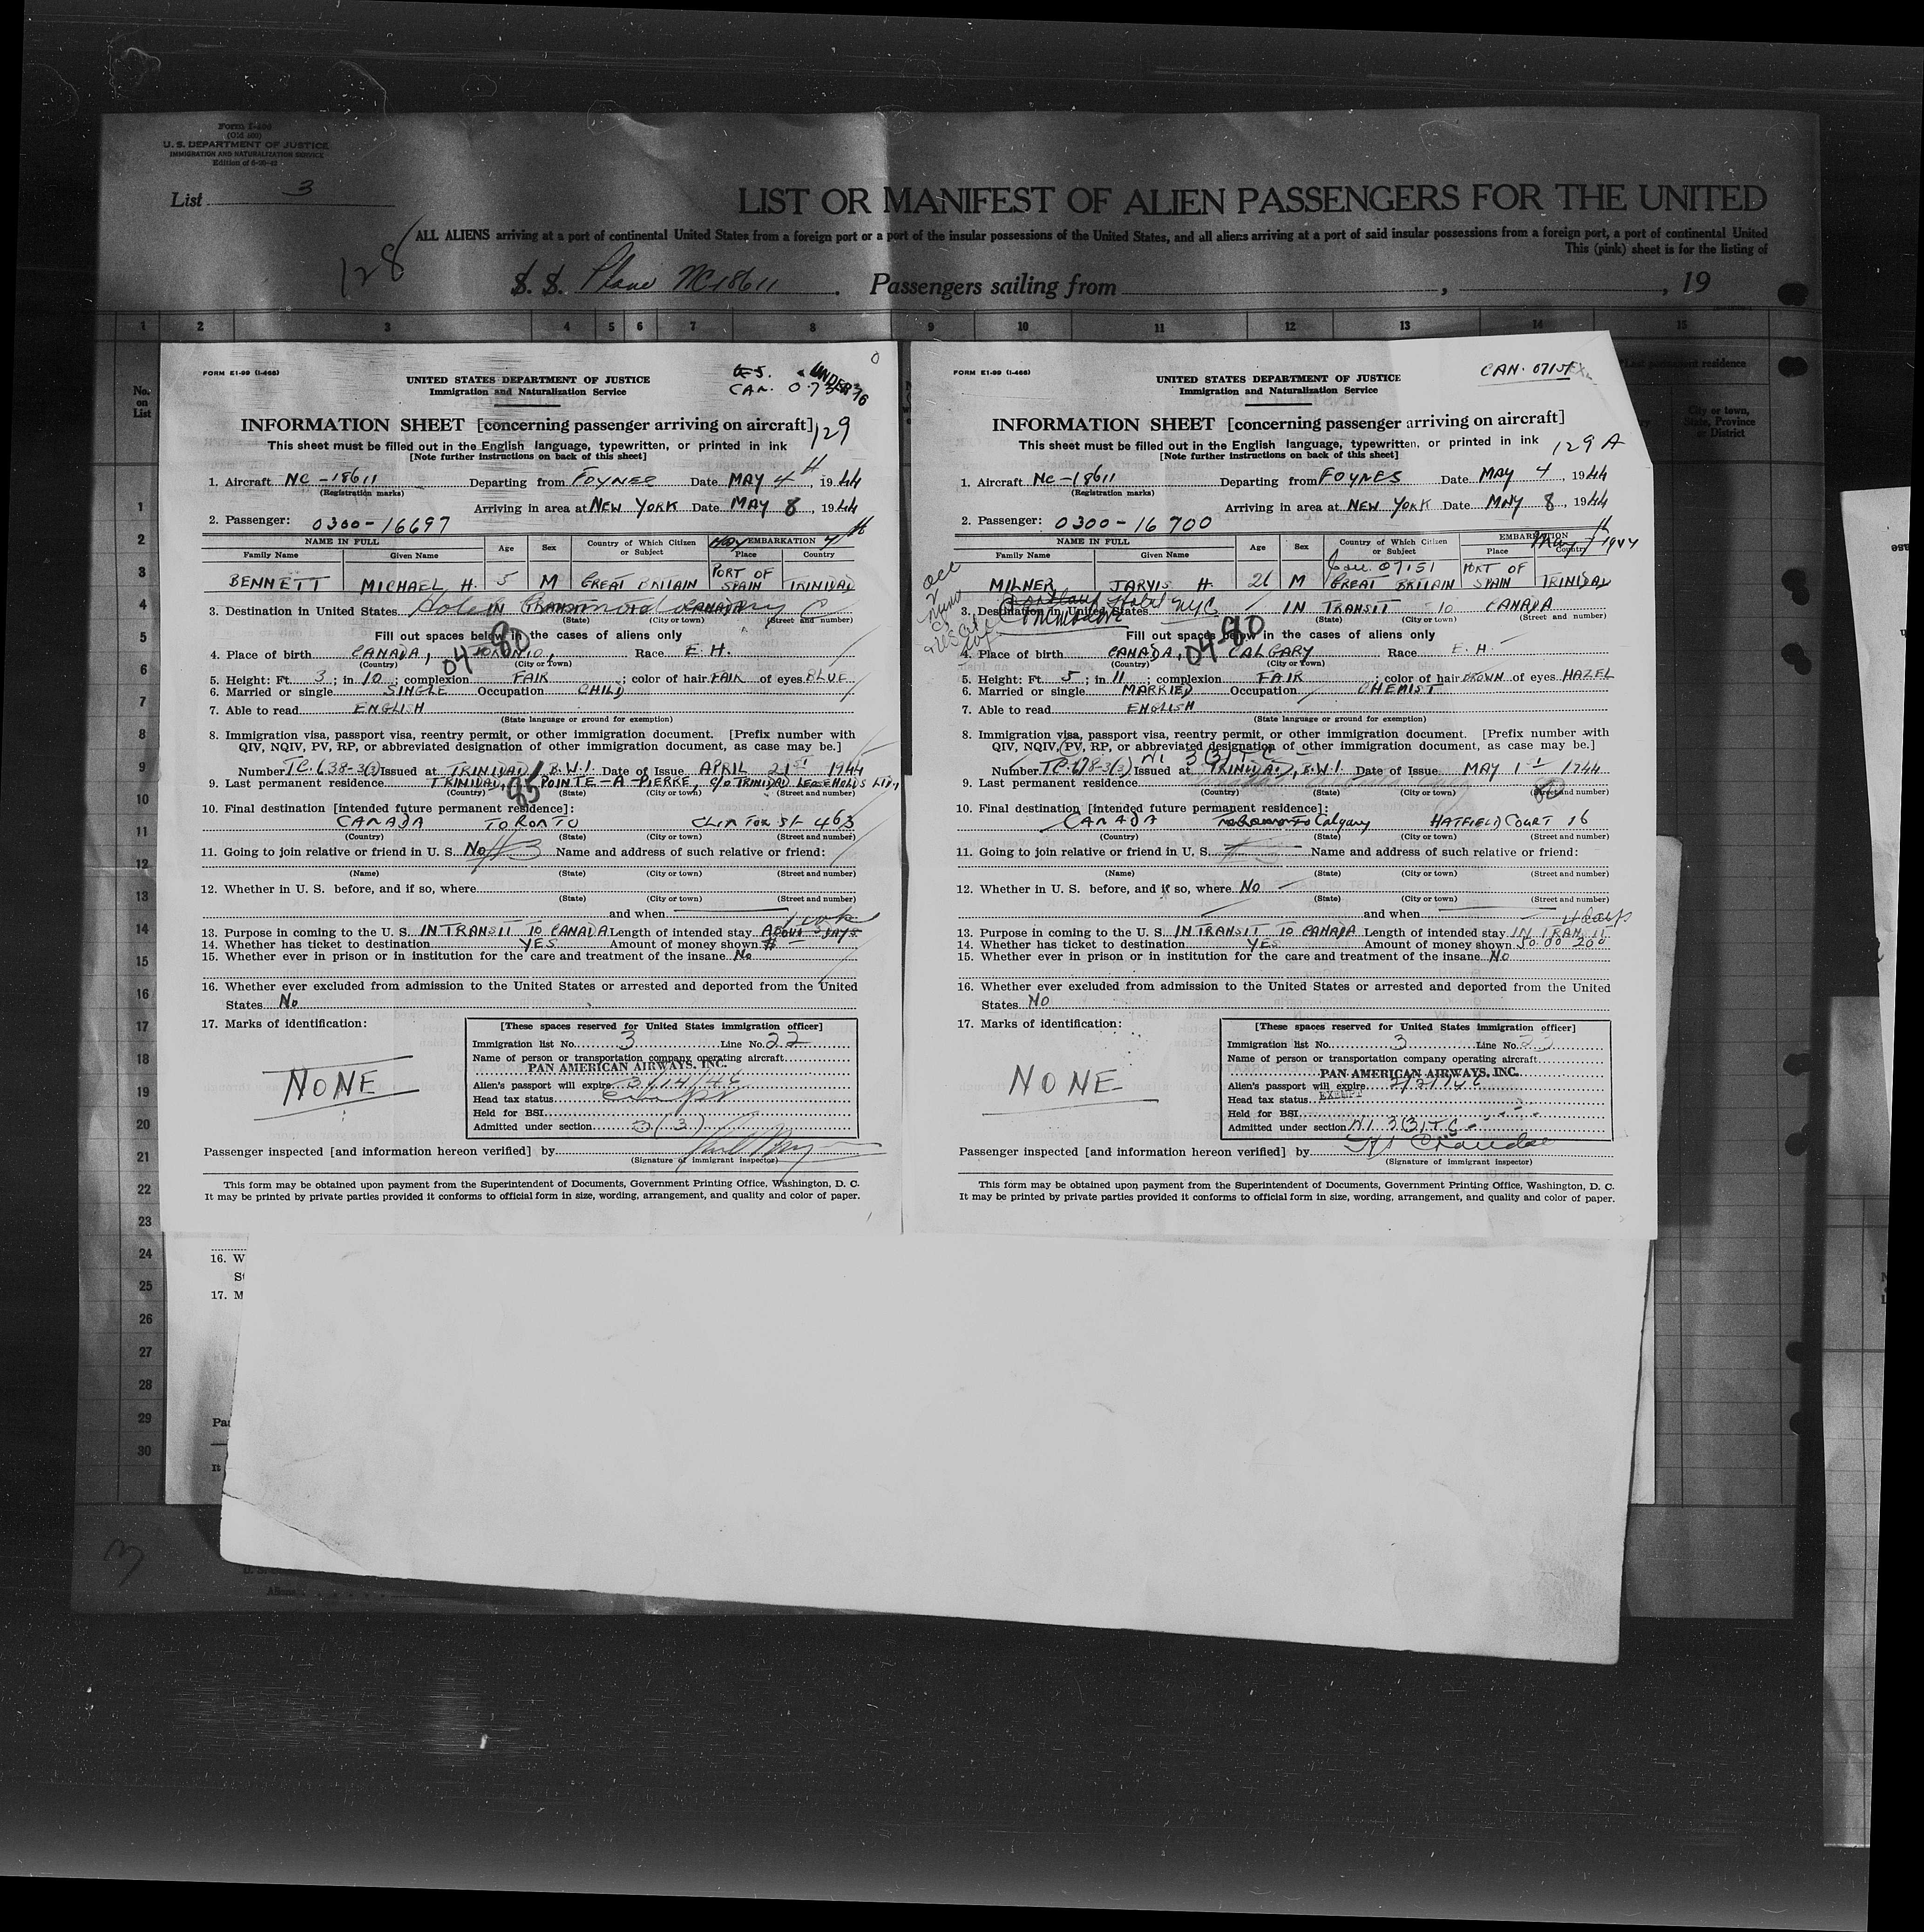 Form I-466
(Old 500)
U. S. DEPARTMENT OF JUSTICE
IMMIGRATION AND NATURALIZATION SERVICE
List 3
LIST OR MANIFEST OF ALIEN PASSENGERS FOR THE UNITED
ALL ALIENS arriving at a port of continental United States from a foreign port or a port of the insular possessions of the United States, and all aliens arriving at a port of said insular possessions from a foreign port, a port of continental United
This (pink) sheet is for the listing of
128
S. S. Plane NC18611. Passengers sailing from , , 19
1 2 3 4 5 6 7 8 9 10 11 12 13 14 15
No.
on
List
Last permanent residence
City or town,
State, Province
or District
1
2
3
4
5
6
7
8
9
10
11
12
13
14
15
16
17
18
19
20
21
22
23
24
25
26
27
28
29
30
FORM E1-99 (I-466)
UNDER 16
CAN.
UNITED STATES DEPARTMENT OF JUSTICE
Immigration and Naturalization Service
INFORMATION SHEET [concerning passenger arriving on aircraft]
129
This sheet must be filled out in the English language, typewritten, or printed in ink
[Note further instructions on back of this sheet]
1. Aircraft NC-18611 Departing from FOYNES Date MAY 4, 1944
(Registration marks)
Arriving in area at NEW YORK Date MAY 8, 1944
2. Passenger: 0300-16697
NAME IN FULL Age Sex Country of Which Citizen or Subject EMBARKATION
Family Name Given Name Place Country
BENNETT MICHAEL H. 5 M GREAT BRITAIN PORT OF SPAIN TRINIDAD
3. Destination in United States IN CANADA
(State) (City or town) (Street and number)
Fill out spaces below in the cases of aliens only
04-80
4. Place of birth CANADA, TORONTO, Race E. H.
(Country) (City or Town)
5. Height: Ft. 3; in 10; complexion FAIR; color of hair FAIR of eyes BLUE
6. Married or single SINGLE Occupation CHILD
7. Able to read ENGLISH
(State language or ground for exemption)
8. Immigration visa, passport visa, reentry permit, or other immigration document. [Prefix number with
QIV, NQIV, PV, RP, or abbreviated designation of other immigration document, as case may be.]
Number TC.638-3(3) Issued at TRINIDAD, B.W.I. Date of Issue APRIL 21st 1944
9. Last permanent residence TRINIDAD, POINTE-A-PIERRE, c/o TRINIDAD LEASEHOLDS LTD.,
85
(Country) (State) (City or town) (Street and number)
10. Final destination [intended future permanent residence]:
CANADA TORONTO CLINTON St. 463
(Country) (State) (City or town) (Street and number)
11. Going to join relative or friend in U. S. No Name and address of such relative or friend:
(Name) (State) (City or town) (Street and number)
12. Whether in U. S. before, and if so, where
(State) (City or town) (Street and number)
and when
1 wk
13. Purpose in coming to the U. S. IN TRANSIT TO CANADA Length of intended stay ABOUT 3 DAYS
14. Whether has ticket to destination YES Amount of money shown $ —
15. Whether ever in prison or in institution for the care and treatment of the insane No
16. Whether ever excluded from admission to the United States or arrested and deported from the United
States No
17. Marks of identification:
NONE
[These spaces reserved for United States immigration officer]
Immigration list No. 3 Line No. 22
Name of person or transportation company operating aircraft
PAN AMERICAN AIRWAYS, INC.
Alien's passport will expire 3/14/46
Head tax status
Held for BSI
Admitted under section 3(3)
Passenger inspected [and information hereon verified] by
(Signature of immigrant inspector)
This form may be obtained upon payment from the Superintendent of Documents, Government Printing Office, Washington, D. C.
It may be printed by private parties provided it conforms to official form in size, wording, arrangement, and quality and color of paper.
FORM E1-99 (I-466)
CAN. 07151
UNITED STATES DEPARTMENT OF JUSTICE
Immigration and Naturalization Service
INFORMATION SHEET [concerning passenger arriving on aircraft]
129 A
This sheet must be filled out in the English language, typewritten, or printed in ink
[Note further instructions on back of this sheet]
1. Aircraft NC-18611 Departing from FOYNES Date MAY 4, 1944
(Registration marks)
Arriving in area at NEW YORK Date MAY 8, 1944
2. Passenger: 0300-16700
NAME IN FULL Age Sex Country of Which Citizen or Subject EMBARKATION
Family Name Given Name Place Country
Can. 07151
MILNER JARVIS H. 26 M GREAT BRITAIN PORT OF SPAIN TRINIDAD
3. Destination in United States Commodore Hotel NYC IN TRANSIT TO CANADA
(State) (City or town) (Street and number)
Fill out spaces below in the cases of aliens only
04-80
4. Place of birth CANADA, CALGARY Race E. H.
(Country) (City or Town)
5. Height: Ft. 5; in 11; complexion FAIR; color of hair BROWN of eyes HAZEL
6. Married or single MARRIED Occupation CHEMIST
7. Able to read ENGLISH
(State language or ground for exemption)
8. Immigration visa, passport visa, reentry permit, or other immigration document. [Prefix number with
QIV, NQIV, PV, RP, or abbreviated designation of other immigration document, as case may be.]
Number TC.678-3(3) Issued at TRINIDAD, B.W.I. Date of Issue MAY 1st 1944
9. Last permanent residence
(Country) (State) (City or town) (Street and number)
10. Final destination [intended future permanent residence]:
CANADA Calgary HATFIELD COURT 16
(Country) (State) (City or town) (Street and number)
11. Going to join relative or friend in U. S. Name and address of such relative or friend:
(Name) (State) (City or town) (Street and number)
12. Whether in U. S. before, and if so, where No
(State) (City or town) (Street and number)
and when
4 days
13. Purpose in coming to the U. S. IN TRANSIT TO CANADA Length of intended stay IN TRANSIT
14. Whether has ticket to destination YES Amount of money shown 50.00 200
15. Whether ever in prison or in institution for the care and treatment of the insane NO
16. Whether ever excluded from admission to the United States or arrested and deported from the United
States NO
17. Marks of identification:
NONE
[These spaces reserved for United States immigration officer]
Immigration list No. 3 Line No. 23
Name of person or transportation company operating aircraft
PAN AMERICAN AIRWAYS, INC.
Alien's passport will expire
Head tax status EXEMPT
Held for BSI
Admitted under section
Passenger inspected [and information hereon verified] by
(Signature of immigrant inspector)
This form may be obtained upon payment from the Superintendent of Documents, Government Printing Office, Washington, D. C.
It may be printed by private parties provided it conforms to official form in size, wording, arrangement, and quality and color of paper.
16. W
St
17. M
Pas
It
3